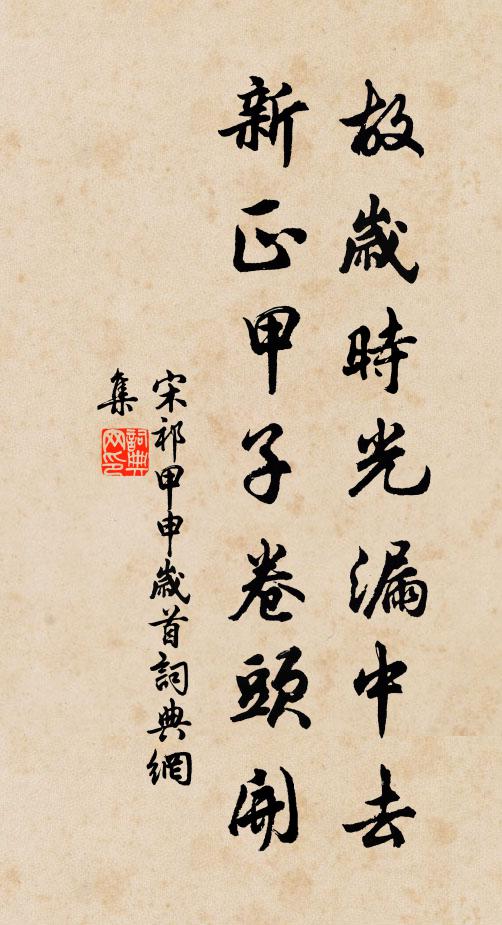 故歲時光漏中去
新正甲子卷頭開
宋祁甲申歲首詞典網
集
詞典网印